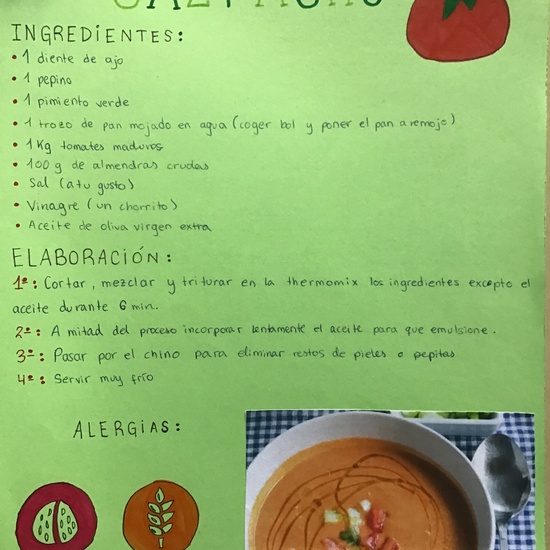 GAZPACHO
INGREDIENTES:
• 1 diente de ajo
• 1 pepino
• 1 pimiento verde
• 1 trozo de pan mojado en agua (coger bol y poner el pan a remojo)
• 1 Kg tomates maduros
• 100 g de almendras crudas
• Sal (a tu gusto)
• Vinagre (un chorrito)
• Aceite de oliva virgen extra
ELABORACIÓN:
1º: Cortar, mezclar y triturar en la thermomix los ingredientes excepto el
aceite durante 6 min.
2º: A mitad del proceso incorporar lentamente el aceite para que emulsione.
3º: Pasar por el chino para eliminar restos de pieles o pepitas
4º: Servir muy frío
ALERGIAS: